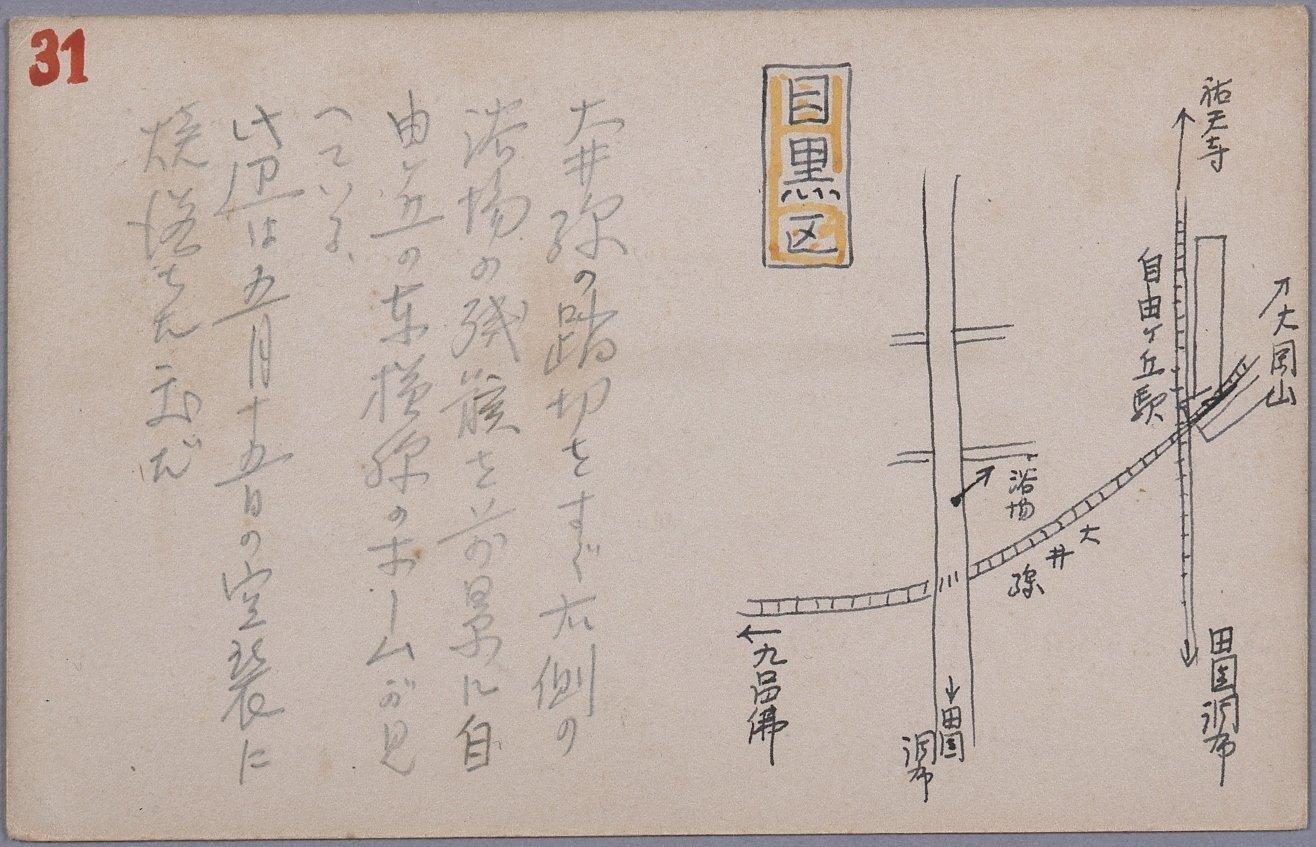 31
目黒区
祐天寺
自由ヶ丘駅
大岡山
浴場
大井線
九品佛
田園
調布
田園調布
大井線の踏切をすぐ右側の
浴場の残骸を前景に自
由ヶ丘の東横線のホームが見
へている、
此辺は五月十五日の空襲に
焼落ちた